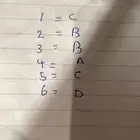 1 = C
2 = B
3 = B
4 = A
5 = C
6 = D